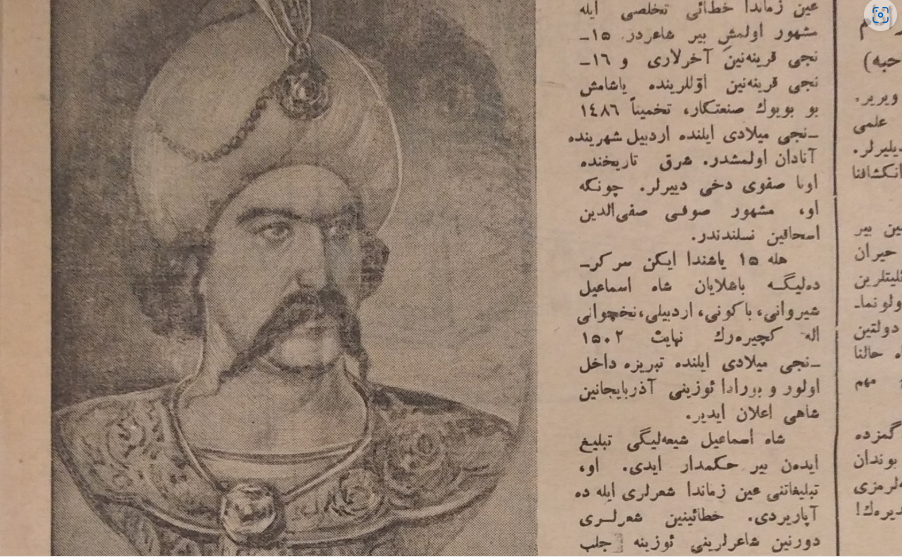 عین زماندا خطائی تخلصی ایله
مشهور اولمش بیر شاعردر. ۱۵ـ
نجی قرینه‌نین آخرلاری و ۱۶ـ
نجی قرینه‌نین اوّللرینده یاشامش
بو بویوك صنعتکار، تخمیناً ۱٤۸٦
ـنجی میلادی ایلنده اردبیل شهرینده
آنادان اولمشدر. شرق تاریخنده
اونا صفوی دخی دییرلر. چونکه
او، مشهور صوفی صفی‌الدین
اسحاقین نسلندندر.
هله ۱۵ یاشندا ایکن سرکرـ
ده‌لیگـه باشلایان شاه اسماعیل
شیروانی، باکونی، اردبیلی، نخچوانی
اله کچیره‌رك نهایت ۱۵۰۲
ـنجی میلادی ایلنده تبریزه داخل
اولور و بورادا ئوزینی آذربایجانین
شاهی اعلان ایدیر.
شاه اسماعیل شیعه‌لیگی تبلیغ
ایده‌ن بیر حکمدار ایدی. او،
تبلیغاتنی عین زماندا شعرلری ایله ده
آپاریردی. خطائینین شعرلـری
دورنین شاعرلرینی ئوزینه جلب
حبه)
ویریر.
علمی
دیلیرلر.
انکشافنا
ین بیر
حیران
ئلیتلرین
ولونماـ
دولتین
ه حالنا
مهم
گمزده
بوندان
ه‌لرمزی
دیره‌ك!